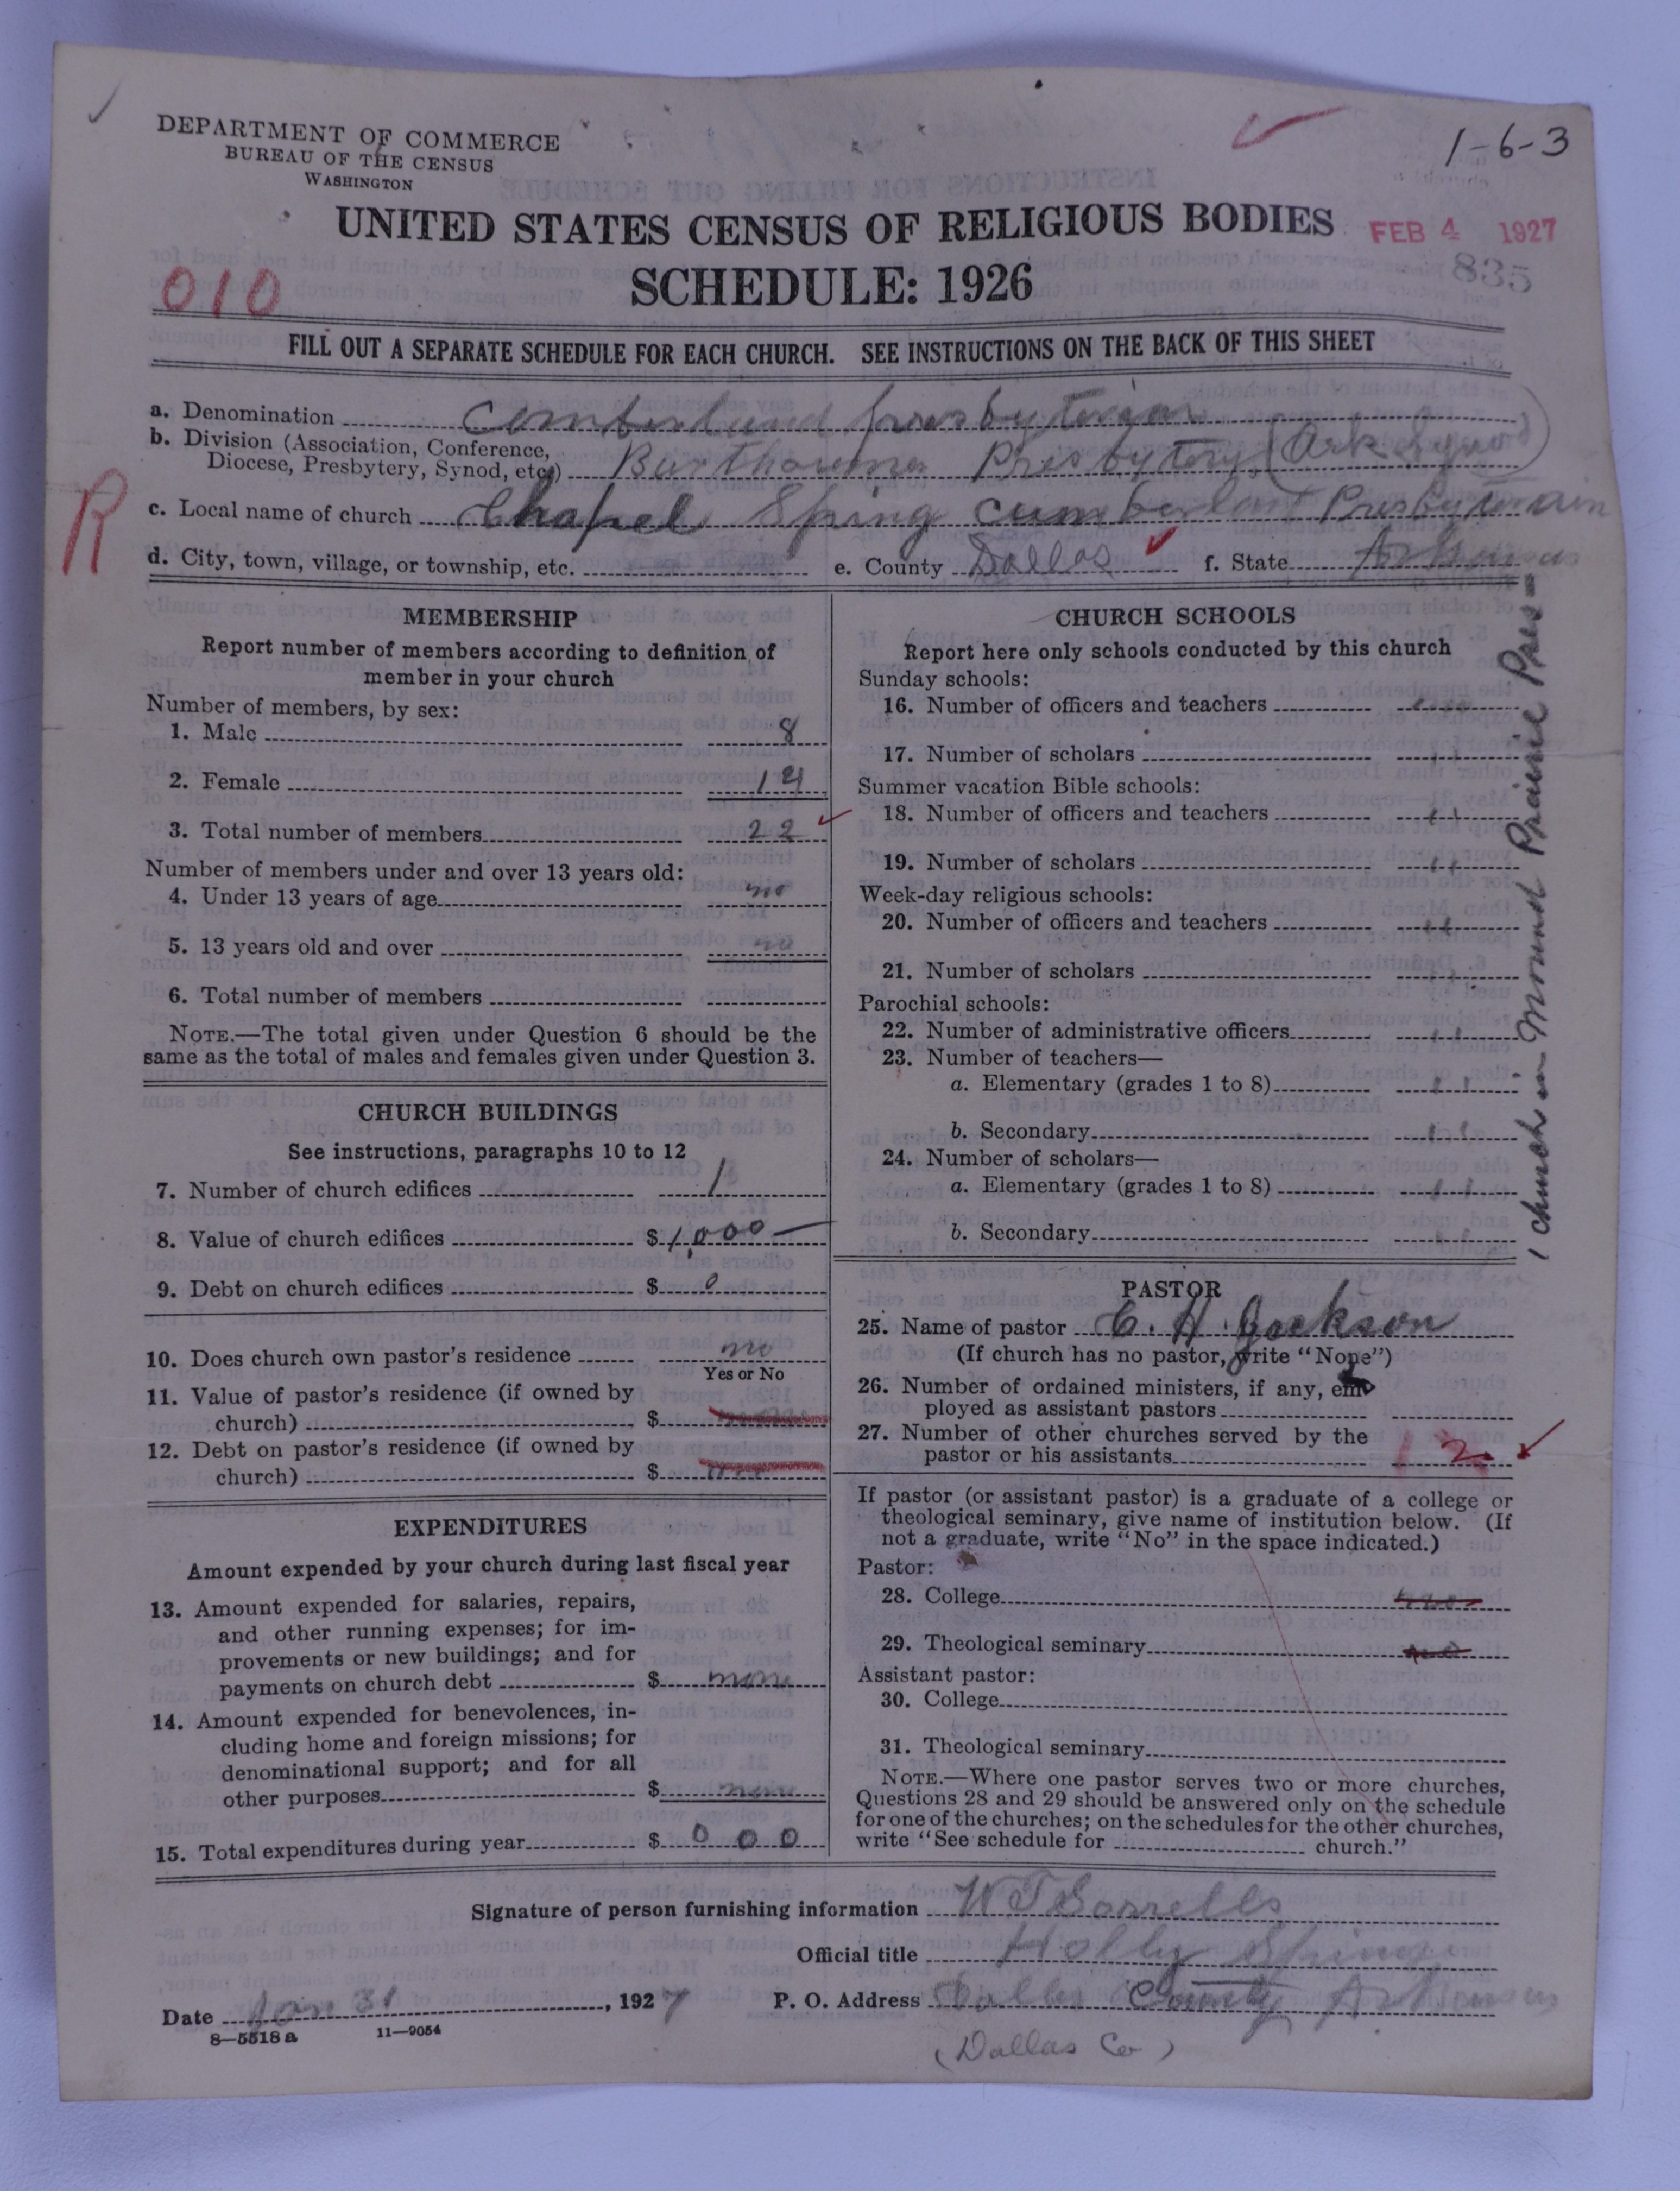 DEPARTMENT OF COMMERCE
BUREAU OF THE CENSUS
WASHINGTON
1-6-3
UNITED STATES CENSUS OF RELIGIOUS BODIES
FEB 4 1927
835
SCHEDULE: 1926
010
FILL OUT A SEPARATE SCHEDULE FOR EACH CHURCH. SEE INSTRUCTIONS ON THE BACK OF THIS SHEET
a. Denomination Comberland presbyterian
b. Division (Association, Conference,
Diocese, Presbytery, Synod, etc.) Presbytery (Ark Synod)
R
c. Local name of church Chapel Spring cumberlant Presbyterain
d. City, town, village, or township, etc. e. County Dallas f. State Arkansas
MEMBERSHIP
Report number of members according to definition of
member in your church
Number of members, by sex:
1. Male 8
2. Female 14
3. Total number of members 22
Number of members under and over 13 years old:
4. Under 13 years of age no
5. 13 years old and over no
6. Total number of members
NOTE.—The total given under Question 6 should be the
same as the total of males and females given under Question 3.
CHURCH BUILDINGS
See instructions, paragraphs 10 to 12
7. Number of church edifices 1
8. Value of church edifices $ 1,000—
9. Debt on church edifices $ 0
10. Does church own pastor's residence no
Yes or No
11. Value of pastor's residence (if owned by
church) $
12. Debt on pastor's residence (if owned by
church) $
EXPENDITURES
Amount expended by your church during last fiscal year
13. Amount expended for salaries, repairs,
and other running expenses; for im-
provements or new buildings; and for
payments on church debt $ none
14. Amount expended for benevolences, in-
cluding home and foreign missions; for
denominational support; and for all
other purposes $ none
15. Total expenditures during year $ 0 0 0
CHURCH SCHOOLS
Report here only schools conducted by this church
Sunday schools:
16. Number of officers and teachers
17. Number of scholars 11
Summer vacation Bible schools:
18. Number of officers and teachers 11
19. Number of scholars 11
Week-day religious schools:
20. Number of officers and teachers 11
21. Number of scholars 11
Parochial schools:
22. Number of administrative officers 11
23. Number of teachers—
a. Elementary (grades 1 to 8) 11
b. Secondary 11
24. Number of scholars—
a. Elementary (grades 1 to 8) 11
b. Secondary 11
1 church in Mound Prairie Pres-
PASTOR
25. Name of pastor C. H. Jackson
(If church has no pastor, write "None")
26. Number of ordained ministers, if any, em-
ployed as assistant pastors
27. Number of other churches served by the
pastor or his assistants 2
If pastor (or assistant pastor) is a graduate of a college or
theological seminary, give name of institution below. (If
not a graduate, write "No" in the space indicated.)
Pastor:
28. College no
29. Theological seminary no
Assistant pastor:
30. College
31. Theological seminary
NOTE.—Where one pastor serves two or more churches,
Questions 28 and 29 should be answered only on the schedule
for one of the churches; on the schedules for the other churches,
write "See schedule for church."
Signature of person furnishing information W T Sorrells
Official title Holly Springs
Date Jan 31, 1927 P. O. Address Dallas County Arkansas
8—5518 a 11—9054
(Dallas Co)